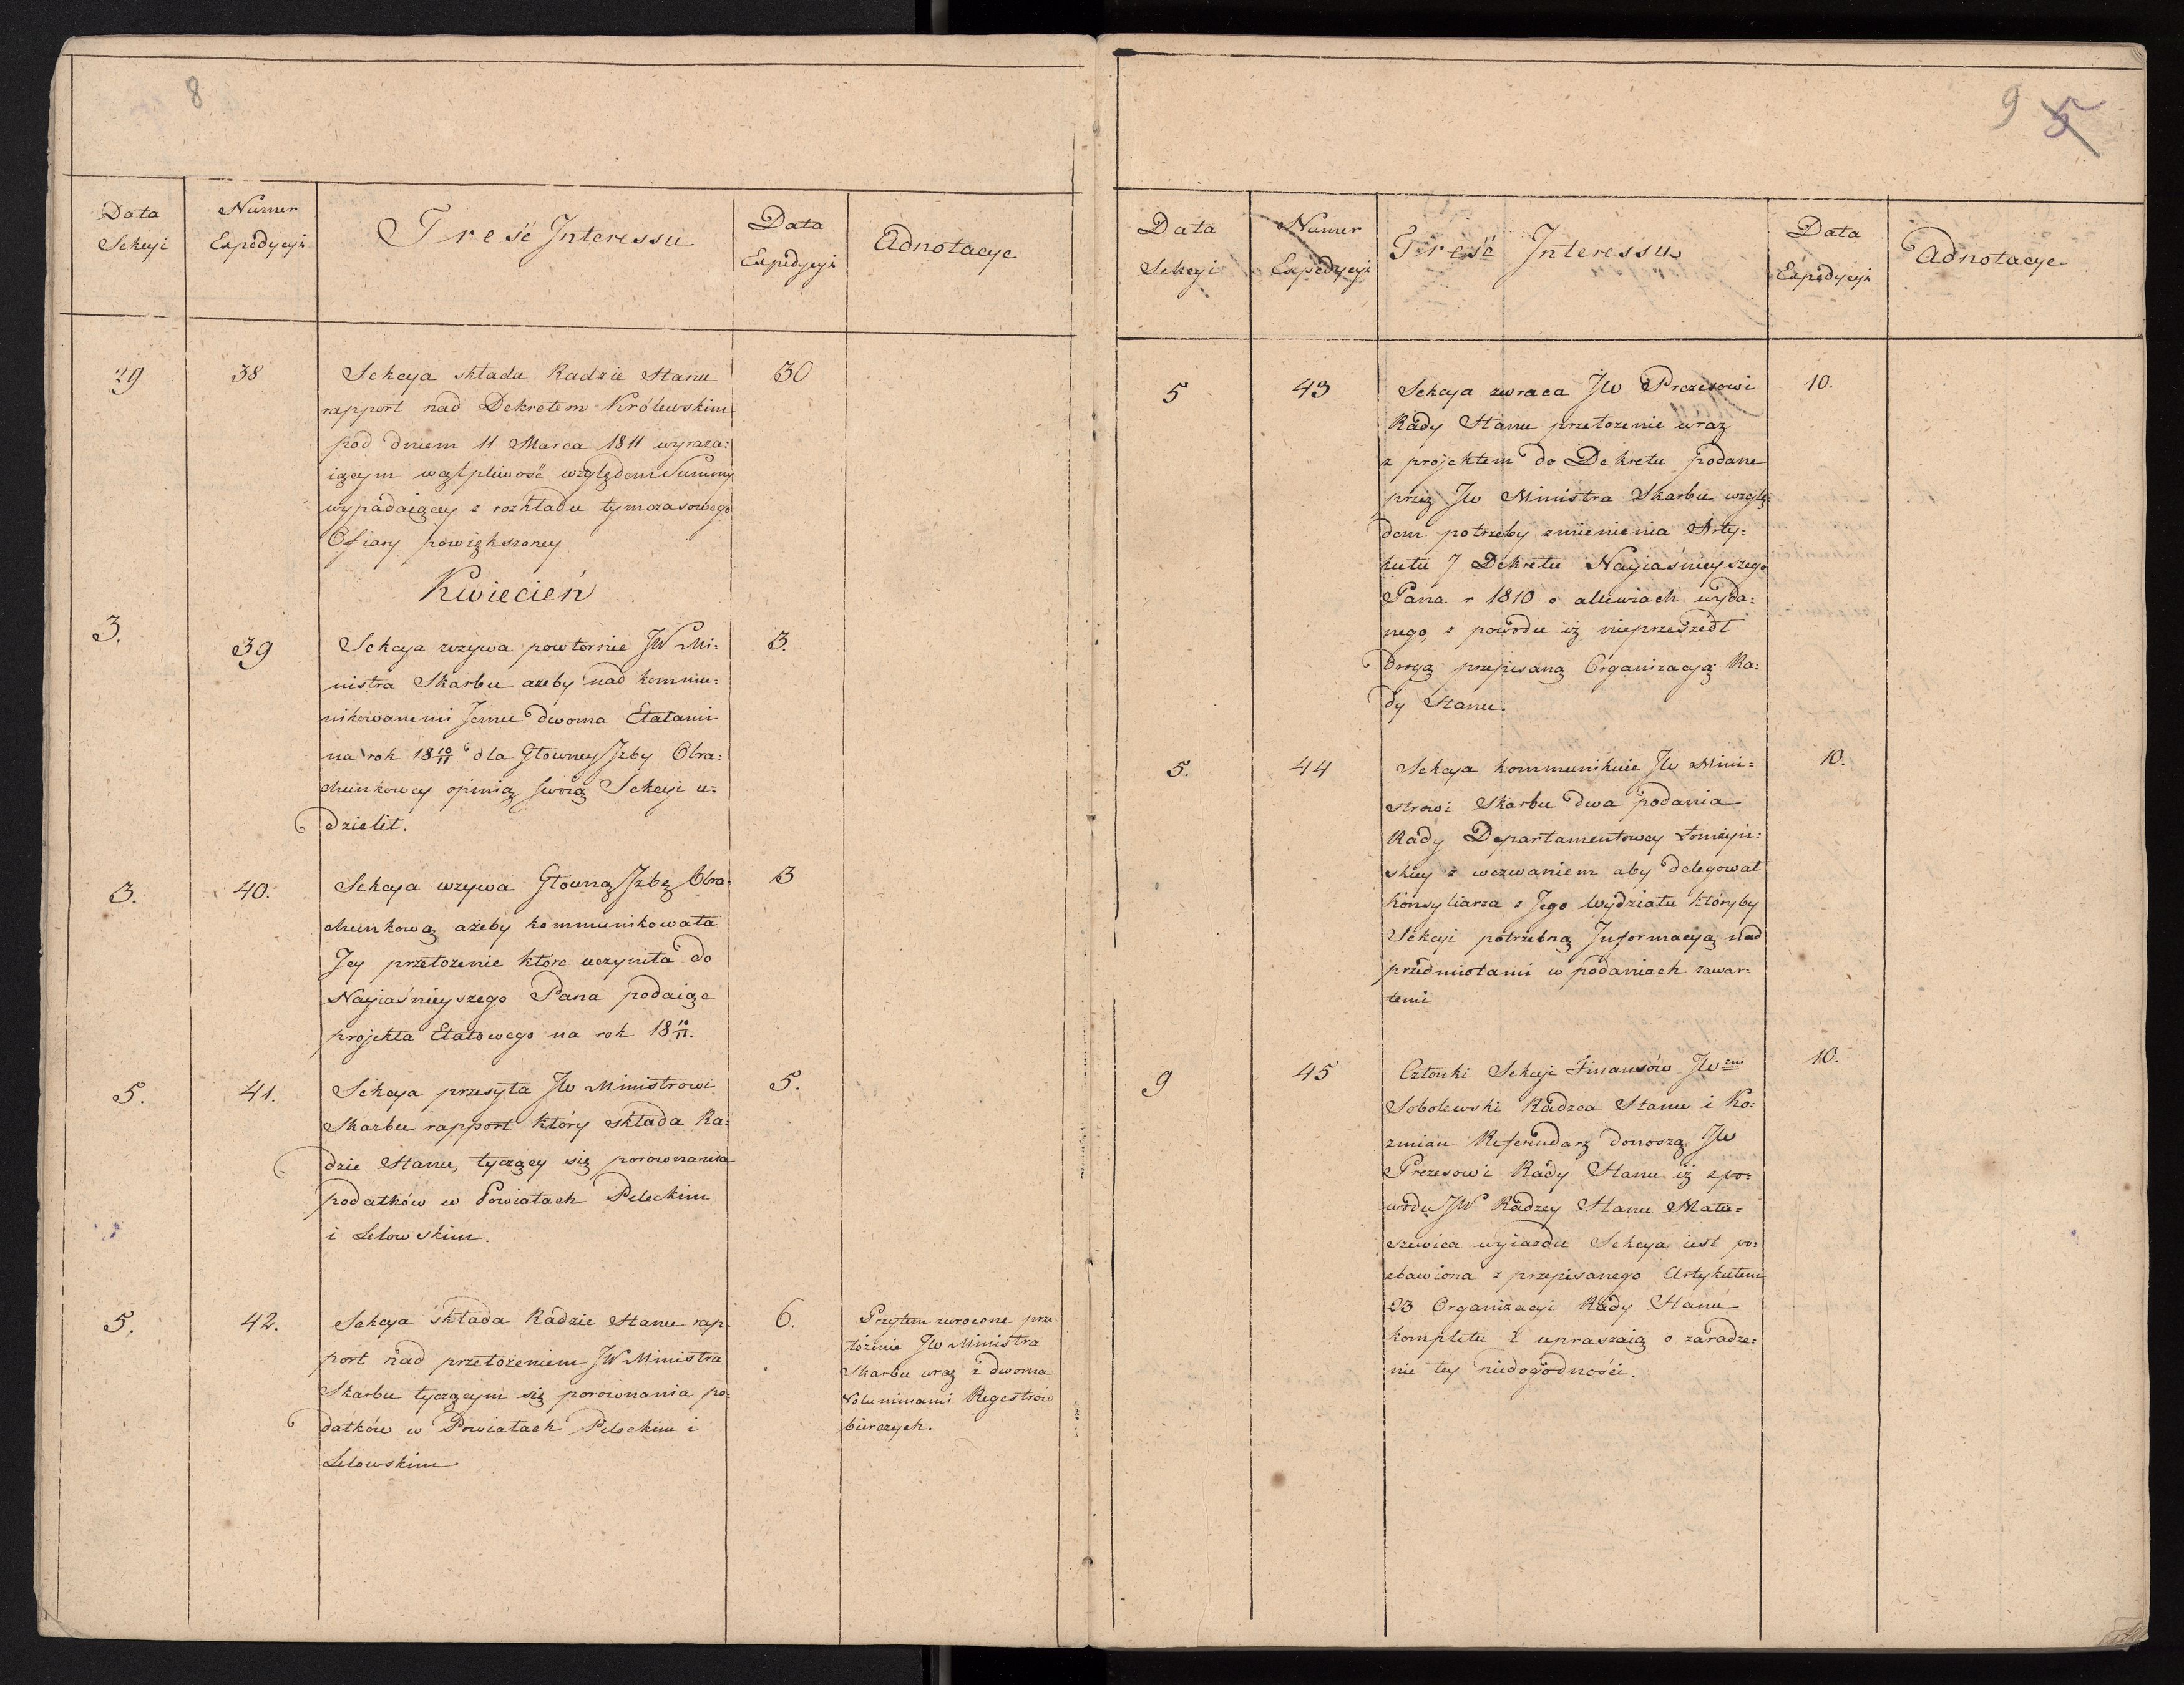 8
Data
Sekcyi
Numer
Expedycyi
Treść Interessu
Data
Expedycyi
Adnotacye
29
38
Sekcya składa Radzie Stanu
rapport nad Dekretem Królewskim
pod dniem 11 Marca 1811 wyraża:
iącym wątpliwość względem Summy
wypadaiącey z rozkładu tymczasowego
Ofiary powiększoney
30
Kwiecień
3.
39
Sekcya wzywa powtornie JW Mi:
nistra Skarbu ażeby nad kommu:
nikowanemi Jemu dwoma Etatami
na rok 18 10/11 dla Głowney Jzby Obra:
chunkowey opinią swoią Sekcyi u:
dzielił.
3.
3.
40.
Sekcya wzywa Główną Jzbę Obra:
chunkową ażeby kommunikowała
Jey przełożenie które uczyniła do
Nayiaśnieyszego Pana podaiąc
projekta Etatowego na rok 18 10/11.
3
5.
41.
Sekcya przesyła JW Ministrowi
Skarbu rapport który składa Ra:
dzie Stanu, tyczący się porownania
podatków w Powiatach Pileckim
i Lelowskim.
5.
5.
42.
Sekcya składa Radzie Stanu rap:
port nad przełożeniem JW Ministra
Skarbu tyczącym się porownania po:
datków w Powiatach Pileckim i
Lelowskim
6.
Przytem zwrocone prze:
łożenie JW Ministra
Skarbu wraz z dwoma
Voluminami Regestrów
bierczych.
9 5
Data
Sekcyi
Numer
Expedycyi
Treść Interessu
Data
Expedycyi
Adnotacye
5
43
Sekcya zwraca JW Prezesowi
Rady Stanu przełożenie wraz
z projektem do Dekretu podane
przez JW Ministra Skarbu wzglę:
dem potrzeby zmienienia Arty:
kułu 7 Dekretu Nayiaśnieyszego
Pana r 1810 o allewiach wyda:
nego, z powodu iż nieprzeszedł
drogą przepisaną Organizacyą Ra:
dy Stanu.
10.
5.
44
Sekcya kommunikuie JW Mini:
strowi Skarbu dwa podania
Rady Departamentowey Łomżyń:
skiey z wezwaniem aby delegował
konsyliarza z Jego Wydziału któryby
Sekcyi potrzebną Informacyą nad
przedmiotami w podaniach zawar:
temi
10.
9
45
Członki Sekcyi Finansów JW zni
Sobolewski Radzca Stanu i Ko:
zmian Referendarz donoszą JW
Prezesowi Rady Stanu iż z po:
wodu JW Radzcy Stanu Matu:
szewica wyiazdu Sekcya iest po:
zbawiona z przepisanego Artykułem
23 Organizacyi Rady Stanu
kompletu i upraszaią o zaradze:
nie tey niedogodności.
10.